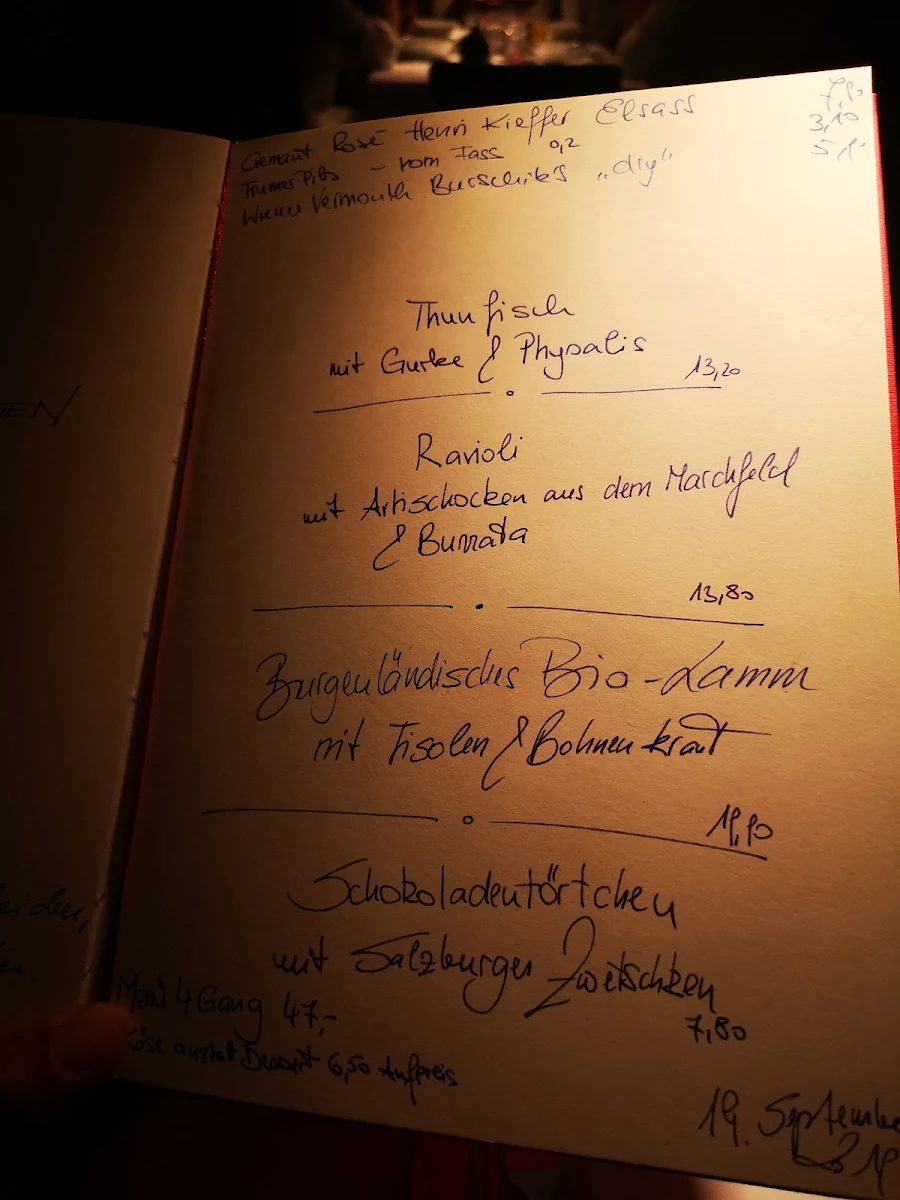 EN
Cremant Rosé Henri Kieffer Elsass 7,90
Trumer Pils - vom Fass 0,2 3,10
Wiener Vermouth Burschik's „dry“
Thunfisch
mit Gurke & Physalis
13,20
Ravioli
mit Artischocken aus dem Marchfeld
& Burrata
13,80
Burgenländisches Bio-Lamm
mit Fisolen & Bohnenkraut
19,90
Schokoladentörtchen
mit Salzburger Zwetschken
7,80
Menü 4 Gang 47,-
Käse anstatt Dessert 6,50 Aufpreis
19. September